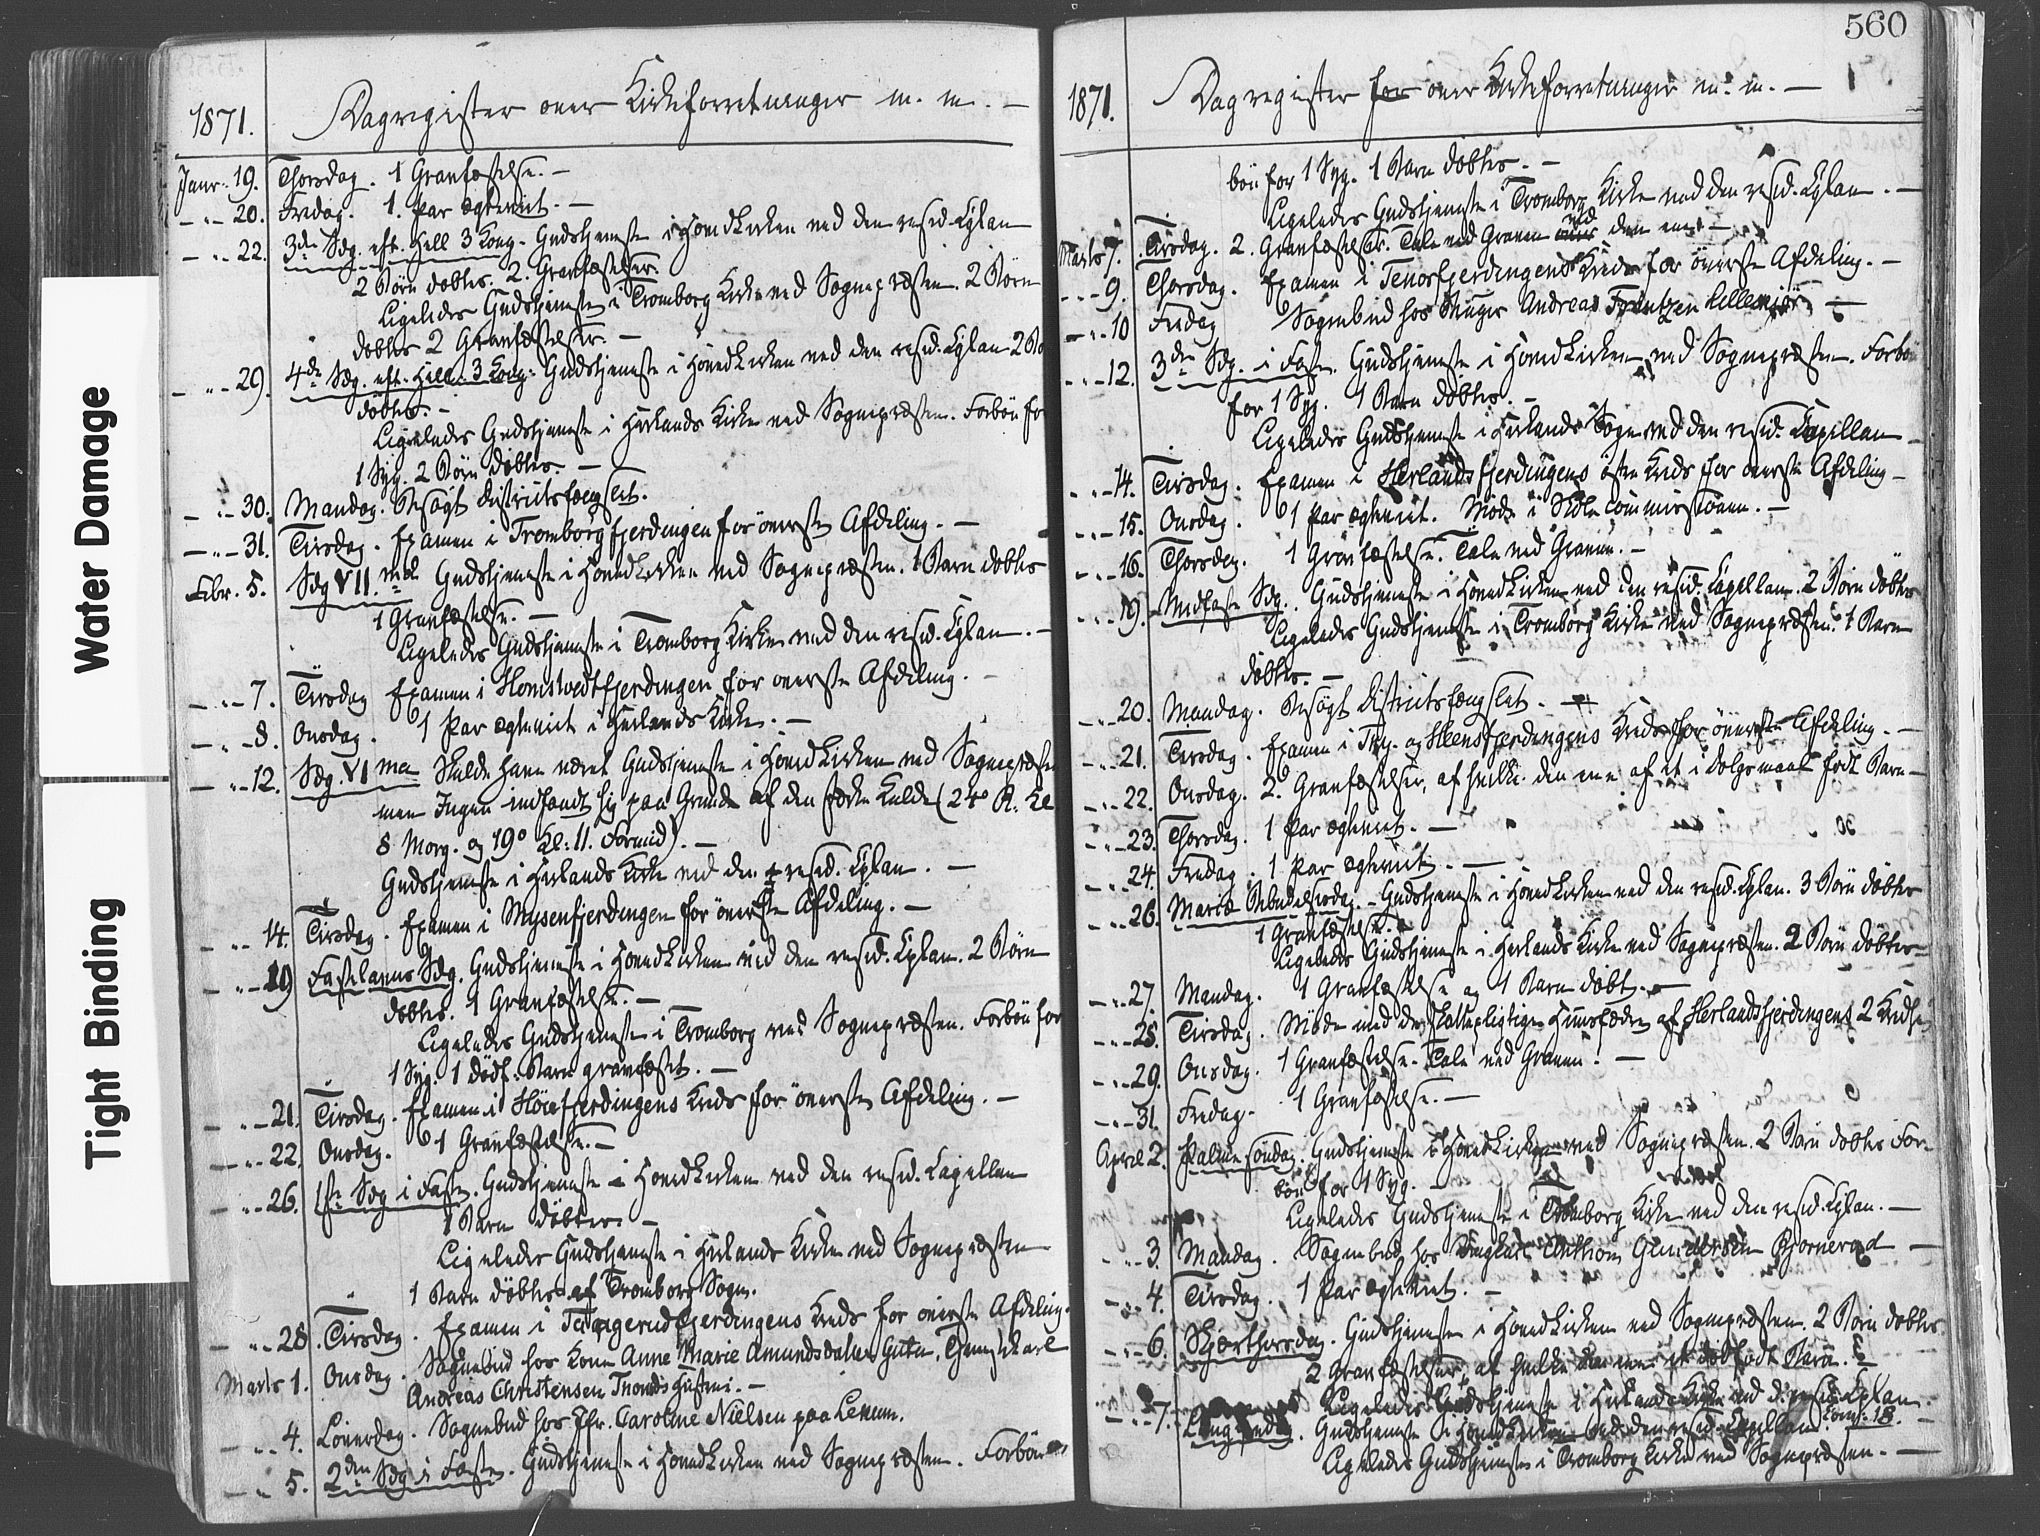 Water Damage
Tight Binding
1871. Dagregister over Kirkeforretninger m. m. —
Janr. 19. Thorsdag. 1 Gravfæstelse. —
— " — 20. Fredag. 1. Par ægteviet. —
— " — 22. 3die Sdg. eft. Hell. 3 Kong. Gudstjeneste i Hovedkirken ved den resid. Cplan
2 Børn døbtes. 2. Gravfæstelser.
Ligeledes Gudstjeneste i Tromborg Kirke ved Sognepræsten. 2 Børn
døbtes 2 Gravfæstelser. —
— " — 29. 4de Sdg. eft. Hell. 3 Kong. Gudstjeneste i Hovedkirken ved den resid. Cplan 2 Bø
døbtes. —
Ligeledes Gudstjeneste i Herlands Kirke ved Sognepræsten. Forbøn for
1 Syg. 2 Børn døbtes. —
— " — 30. Mandag. Besøgt Districtsfængslet.
— " — 31. Tirsdag. Examen i Tromborgfjerdingen for øverste Afdeling. —
Febr. 5. Sdg. VII.ma Gudstjeneste i Hovedkirken ved Sognepræsten. 1 Barn døbtes
1 Gravfæstelse. —
Ligeledes Gudstjeneste i Tromborg Kirke ved den resid. Cplan. —
— " — 7. Tirsdag Examen i Homstvedtfjerdingen for øverste Afdeling. —
— " — 8. Onsdag. 1 Par ægteviet i Herlands Kirke. —
— " — 12. Sdg. VI ma Skulde have været Gudstjeneste i Hovedkirken ved Sognepræsten
men Ingen indfandt sig paa Grund af den stærke Kulde (24° R. Kl
8 Morg. og 19° Kl. 11. Formid). —
Gudstjeneste i Herlands Kirke ved den resid. Cplan. —
— " — 14. Tirsdag. Examen i Mysenfjerdingen for øverste Afdeling. —
— " — 19 Fastelavns Sdg. Gudstjeneste i Hovedkirken ved den resid. Cplan. 2 Børn
døbtes. 1 Gravfæstelse. —
Ligeledes Gudstjeneste i Tromborg ved Sognepræsten. Forbøn for
1 Syg. 1 dødf. Barn gravfæstet. —
— " — 21. Tirsdag. Examen i Høiefjerdingens Kreds for øverste Afdeling. —
— " — 22. Onsdag. 1 Gravfæstelse. —
— " — 26. 1ste Sdg. i Faste. Gudstjeneste i Hovedkirken ved den resid. Capellan
1 Barn døbtes. —
Ligeledes Gudstjeneste i Herlands Kirke ved Sognepræsten
1 Barn døbtes af Tromborg Sogn.
— " — 28. Tirsdag. Examen i Taugerudfjerdingens Kreds for øverste Afdeling.
Marts 1. Onsdag. Sognebud hos Kone Anne Marie Amundsdatter
Andreas Christensen Hustru. —
— " — 4. Løverdag. Sognebud hos Jfr. Caroline Nielsen paa Lekum.
— " — 5. 2den Sdg. i Faste. Gudstjeneste i Hovedkirken ved Sognepræsten. Forbøn
560
1871. Dagregister for over Kirkeforretninger m. m. —
bøn for 1 Syg. 1 Barn døbtes. —
Ligeledes Gudstjeneste i Tromborg Kirke ved den resid. Cplan. —
Marts 7. Tirsdag. 2. Gravfæstelser. Tale ved Graven ved den ene —
— " — 9. Thorsdag. Examen i Tenorfjerdingens Kreds for øverste Afdeling. —
— " — 10 Fredag Sognebud hos Andreas Frantzen —
— " — 12. 3die Sdg. i Faste. Gudstjeneste i Hovedkirken ved Sognepræsten. Forbøn
for 1 Syg. 1 Barn døbtes. —
Ligeledes Gudstjeneste i Herlands Sogn ved den resid. Capellan
— " — 14. Tirsdag. Examen i Herlandsfjerdingens østre Kreds for øverste Afdeling —
— " — 15. Onsdag. 1 Par ægteviet. Møde i Skolecommissionen. —
— " — 16. Thorsdag. 1 Gravfæstelse. Tale ved Graven. —
— " — 19. Midfaste Sdg. Gudstjeneste i Hovedkirken ved den resid. Capellan. 2 Børn døbtes
Ligeledes Gudstjeneste i Tromborg Kirke ved Sognepræsten. 1 Barn
døbtes. —
— " — 20. Mandag. Besøgt Districtsfængslet. —
— " — 21. Tirsdag. Examen i Thy- og Heensfjerdingens Kreds for øverste Afdeling. —
— " — 22. Onsdag. 2. Gravfæstelser, af hvilke den ene af et i dølgsmaal født Barn —
— " — 23. Thorsdag. 1 Par ægteviet. —
— " — 24. Fredag. 1 Par ægteviet. —
— " — 26. Mariæ Bebudelsesdag. Gudstjeneste i Hovedkirken ved den resid. Cplan. 3 Børn døbtes
1 Gravfæstelse.
Ligeledes Gudstjeneste i Herlands Kirke ved Sognepræsten. 2 Børn døbtes
— " — 27. Mandag. 1 Gravfæstelse og 1 Barn døbt. —
— " — 28. Tirsdag. Møde med de skattepligtige Huusfædre af Herlandsfjerdingens 2 Kredse
— " — 29. Onsdag. 1 Gravfæstelse. Tale ved Graven. —
— " — 31. Fredag. 1 Gravfæstelse. —
April 2. Palme Søndag. Gudstjeneste i Hovedkirken ved Sognepræsten. 2 Børn døbtes For-
bøn for 1 Syg. —
Ligeledes Gudstjeneste i Tromborg Kirke ved den resid. Cplan. —
— " — 3. Mandag. Sognebud hos Ungkarl Anthon Gundersen Bjørnerød —
— " — 4. Tirsdag. 1 Par ægteviet. —
— " — 6. Skjærthorsdag. Gudstjeneste i Hovedkirken ved Sognepræsten. 2 Børn døbtes
2 Gravfæstelser, af hvilke den ene et dødfødt Barn.
Ligeledes Gudstjeneste i Herlands Kirke ved d. resid. Cplan.
— " — 7. Langfredag. Gudstjeneste i Hovedkirken ved den resid. Capellan. Comm. 18. —
Ligeledes Gudstjeneste i Tromborg Kirke ved Sognepræsten. —